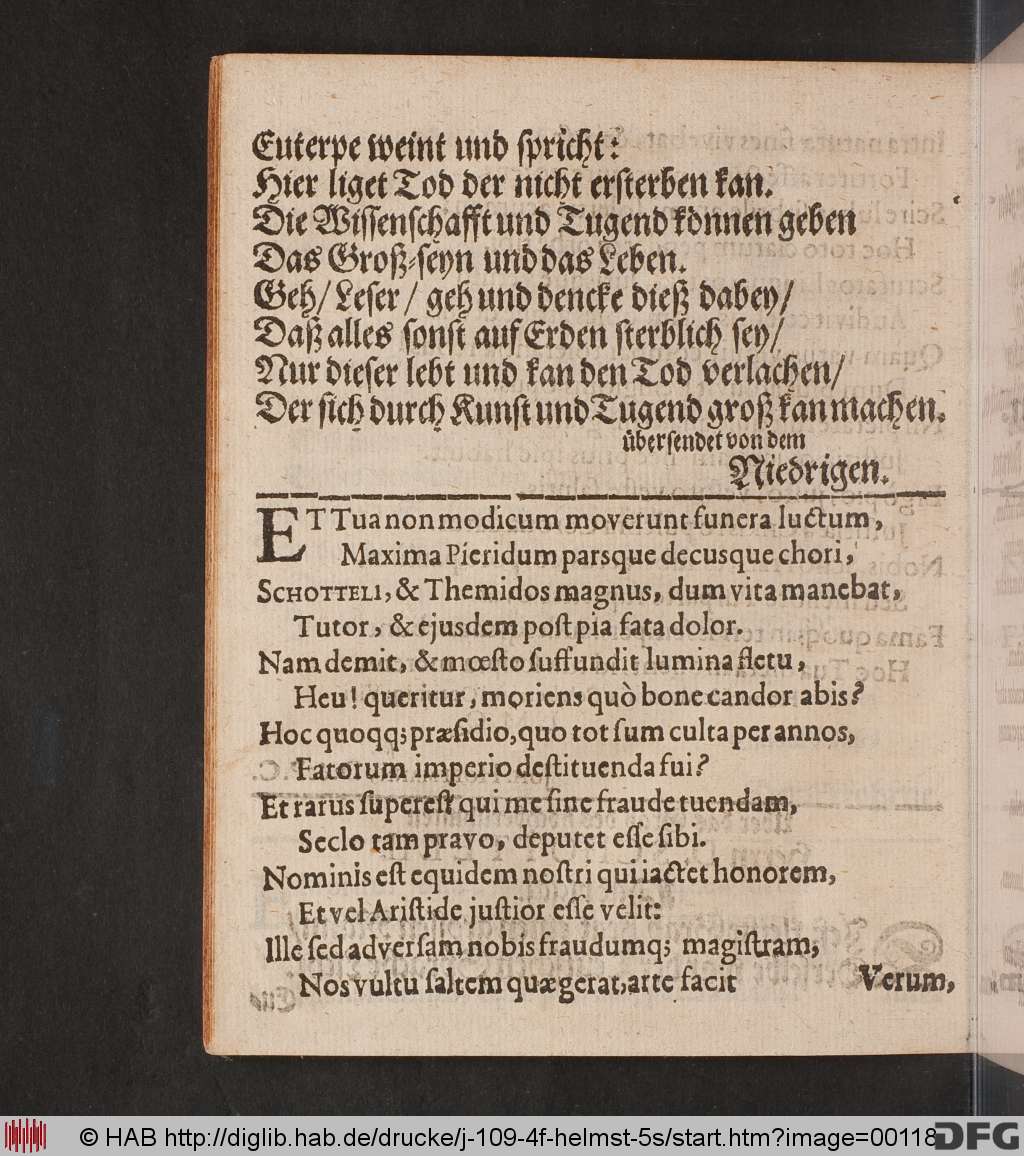 Euterpe weint und spricht:
Hier liget Tod der nicht ersterben kan.
Die Wissenschafft und Tugend können geben
Das Groß-seyn und das Leben.
Geh/ Leser/ geh und dencke dieß dabey/
Daß alles sonst auf Erden sterblich sey/
Nur dieser lebt und kan den Tod verlachen/
Der sich durch Kunst und Tugend groß kan machen.
übersendet von dem
Niedrigen.
ET Tua non modicum moverunt funera luctum,
Maxima Pieridum parsque decusque chori,
SCHOTTELI, & Themidos magnus, dum vita manebat,
Tutor, & ejusdem post pia fata dolor.
Nam demit, & mœsto suffundit lumina fletu,
Heu! queritur, moriens quò bone candor abis?
Hoc quoqq; præsidio, quo tot sum culta per annos,
Fatorum imperio destituenda fui?
Et rarus superest qui me sine fraude tuendam,
Seclo tam pravo, deputet esse sibi.
Nominis est equidem nostri qui iactet honorem,
Et vel Aristide justior esse velit:
Ille sed adversam nobis fraudumq; magistram,
Nos vultu saltem quæ gerat, arte facit
Verum,
© HAB http://diglib.hab.de/drucke/j-109-4f-helmst-5s/start.htm?image=00118
DFG